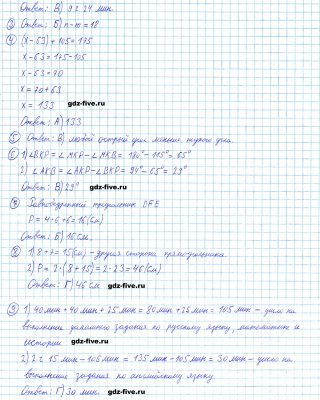 Ответ: В) 9 ч 24 мин.
③ Ответ: Б) n-m=18
④ (x-63)+105=175
x-63=175-105
x-63=70
x=70+63
x= 133
gdz-five.ru
Ответ: А) 133
⑤ Ответ: В) любой острый угол меньше тупого угла.
⑥ 1) ∠ВКР = ∠МКР - ∠МКВ = 180° - 115° = 65°
2) ∠АКВ = ∠АКР - ∠ВКР = 94° - 65° = 29°
Ответ: В) 29°
gdz-five.ru
⑦ Равнобедренный треугольник DFE
P = 4+6+6=16(см)
Ответ: Б) 16 см.
gdz-five.ru
⑧ 1) 8+7=15(см) - другая сторона прямоугольника.
2) P = 2·(8+15)=2·23=46(см)
Ответ: Г) 46 см
gdz-five.ru
⑨ 1) 40 мин + 40 мин + 25 мин = 80 мин + 25 мин = 105 мин - ушло на
выполнение домашнего задания по русскому языку, математике и
истории
gdz-five.ru
2) 2 ч 15 мин - 105 мин = 135 мин - 105 мин = 30 мин - ушло на
выполнение задания по английскому языку.
Ответ: Г) 30 мин.
gdz-five.ru